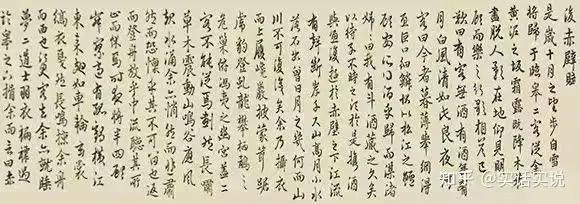 後赤壁賦
是歲十月之望步自雪堂
將歸于臨皋二客從余過
黃泥之坂霜露既降木葉
盡脫人影在地仰見明月
顧而樂之行歌相答已而
歎曰有客無酒有酒無肴
月白風清如此良夜何
客曰今者薄暮舉網得
魚巨口細鱗狀似松江之鱸
顧安所得酒乎歸而謀諸
婦婦曰我有斗酒藏之久矣
以待子不時之需於是攜酒
與魚復遊於赤壁之下江流
有聲斷岸千尺山高月小水
落石出曾日月之幾何而江
山不可復識矣余乃攝衣
而上履巉巖披蒙茸踞
虎豹登虬龍攀栖鶻之
危巢俯馮夷之幽宮蓋二
客不能從焉劃然長嘯
草木震動山鳴谷應風
起水涌余亦悄然而悲肅
然而恐凜乎其不可留也返
而登舟放乎中流聽其所
止而休焉時夜將半四顧
寂寥適有孤鶴橫江
東來翅如車輪玄裳
縞衣戛然長鳴掠余舟
而西也須臾客去余亦就睡
夢一道士羽衣蹁躚過臨
皋之下揖余而言曰赤
知乎 @实话实说